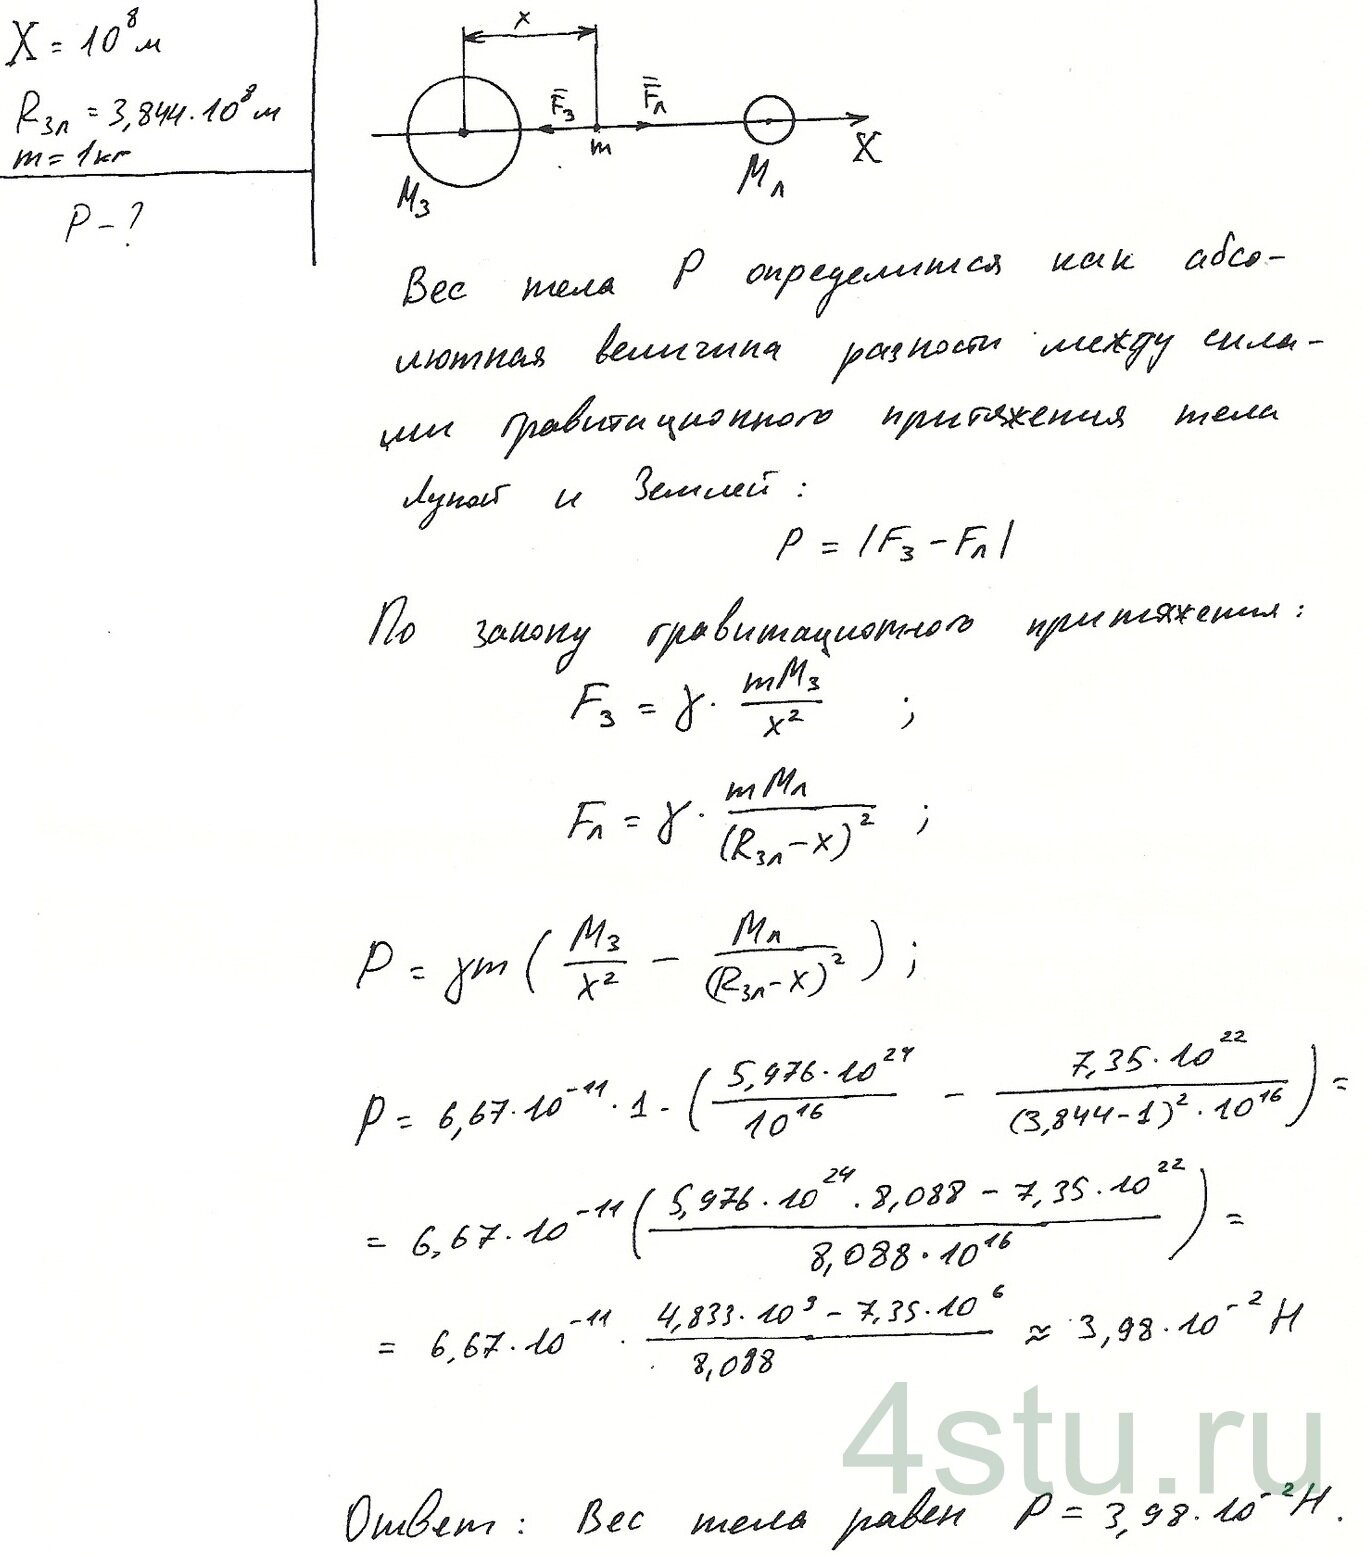 X = 10⁸ м
R₃л = 3,844·10⁸ м
m = 1 кг
P – ?
x
F̅₃ F̅л
m
X
M₃
Mл
Вес тела P определится как абсо-
лютная величина разности между сила-
ми гравитационного притяжения тела
Луной и Землей:
P = |F₃ – Fл|
По закону гравитационного притяжения:
F₃ = γ · mM₃ / x² ;
Fл = γ · mMл / (R₃л – x)² ;
P = γm ( M₃ / x² – Mл / (R₃л – x)² ) ;
P = 6,67·10⁻¹¹ · 1 · ( 5,976·10²⁴ / 10¹⁶ – 7,35·10²² / (3,844–1)²·10¹⁶ ) =
= 6,67·10⁻¹¹ ( 5,976·10²⁴ · 8,088 – 7,35·10²² / 8,088·10¹⁶ ) =
= 6,67·10⁻¹¹ · 4,833·10⁹ – 7,35·10⁶ / 8,088 ≈ 3,98·10⁻² Н
4stu.ru
Ответ: Вес тела равен P = 3,98·10⁻² Н.